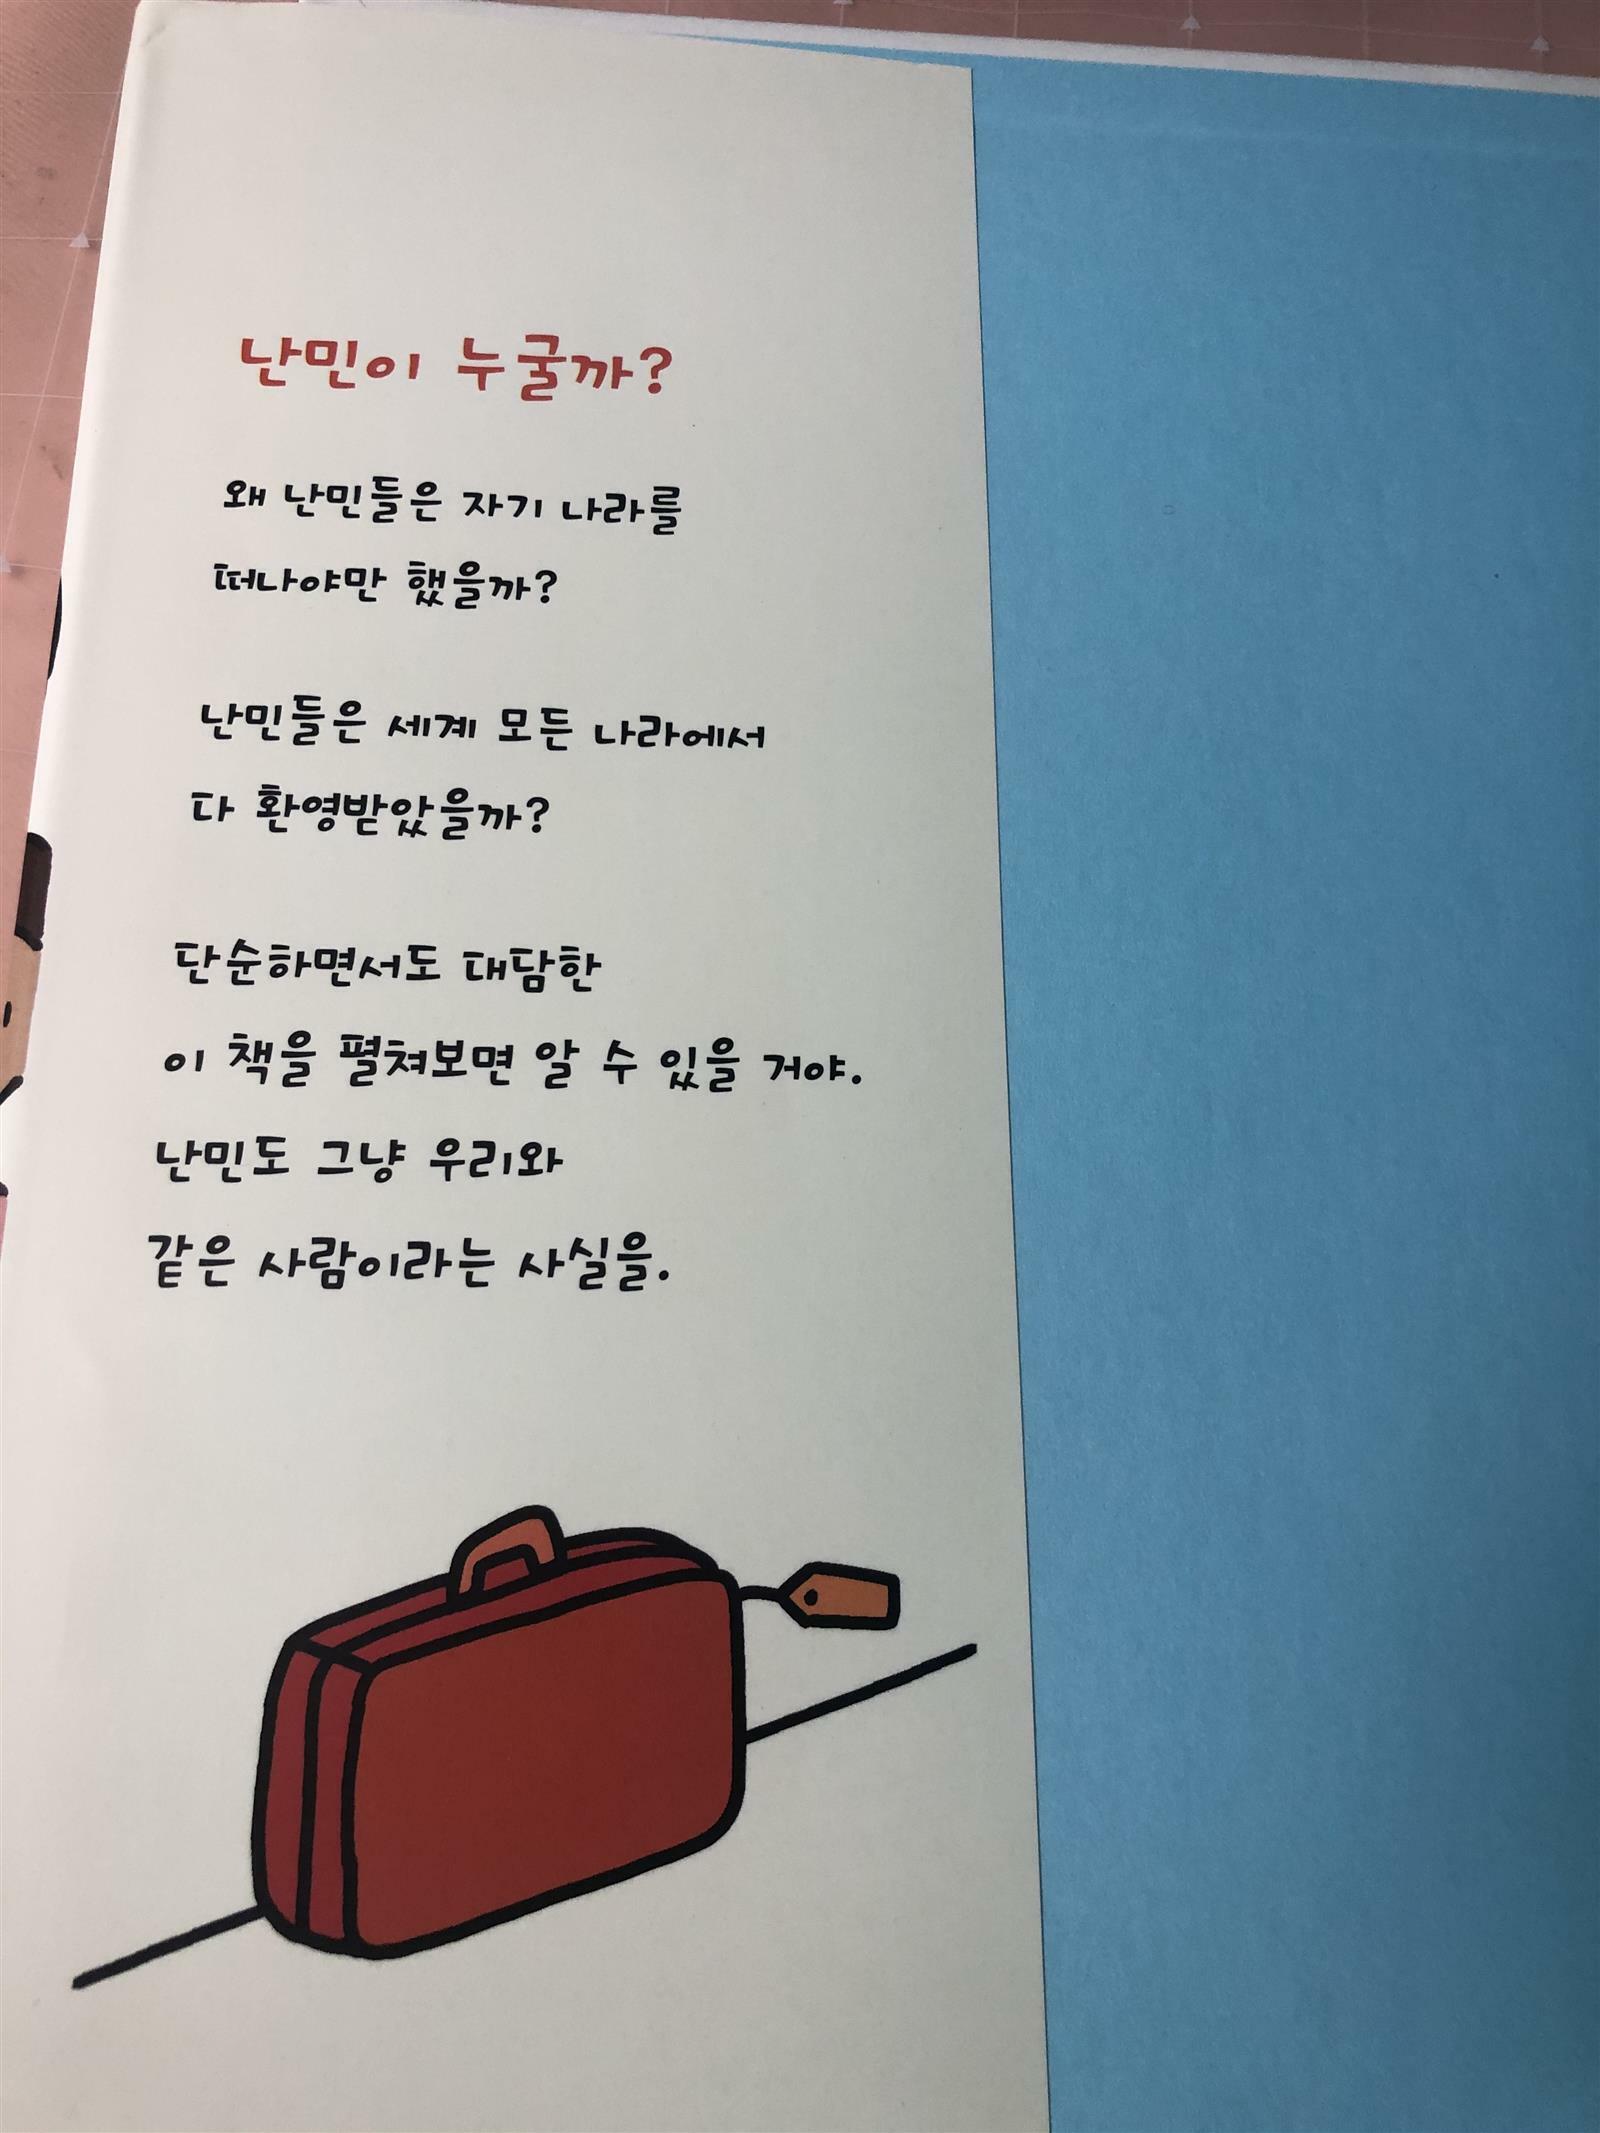 난민이 누굴까?
왜 난민들은 자기 나라를
떠나야만 했을까?
난민들은 세계 모든 나라에서
다 환영받았을까?
단순하면서도 대담한
이 책을 펼쳐보면 알 수 있을 거야.
난민도 그냥 우리와
같은 사람이라는 사실을.